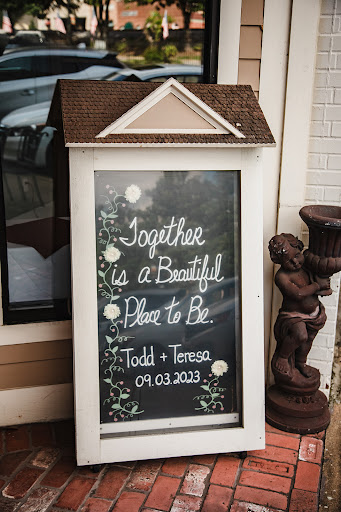 Together
is a Beautiful
Place to Be.
Todd + Teresa
09.03.2023